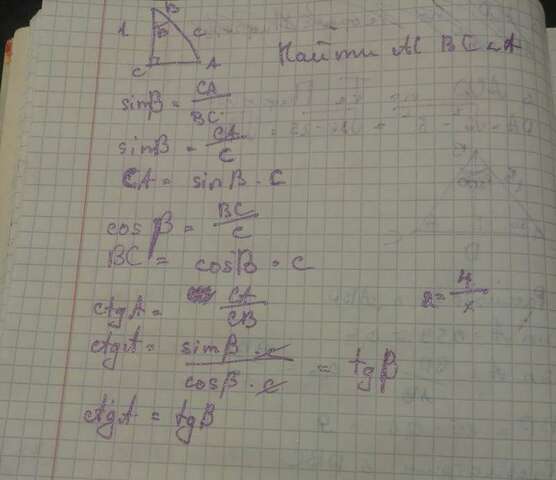 B
1 β c
C A
Найти AC BC ∠A
sinβ = CA/BC
sinβ = CA/C
CA = sinβ · C
cosβ = BC/C
BC = cosβ · C
ctgA = CA/CB
2 = 4/x
ctgA = sinβ · c/cosβ · c = tgβ
ctgA = tgβ